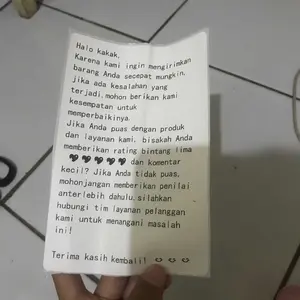 Halo kakak.
Karena kami ingin mengirimkan
barang Anda secepat mungkin,
jika ada kesalahan yang
terjadi, mohon berikan kami
kesempatan untuk
memperbaikinya.
Jika Anda puas dengan produk
dan layanan kami, bisakah Anda
memberikan rating bintang lima
♥♥♥♥♥ dan komentar
kecil? Jika Anda tidak puas,
mohonjangan memberikan penilai
anterlebih dahulu. silahkan
hubungi tim layanan pelanggan
kami untuk menangani masalah
ini!
Terima kasih kembali! ♡♡♡